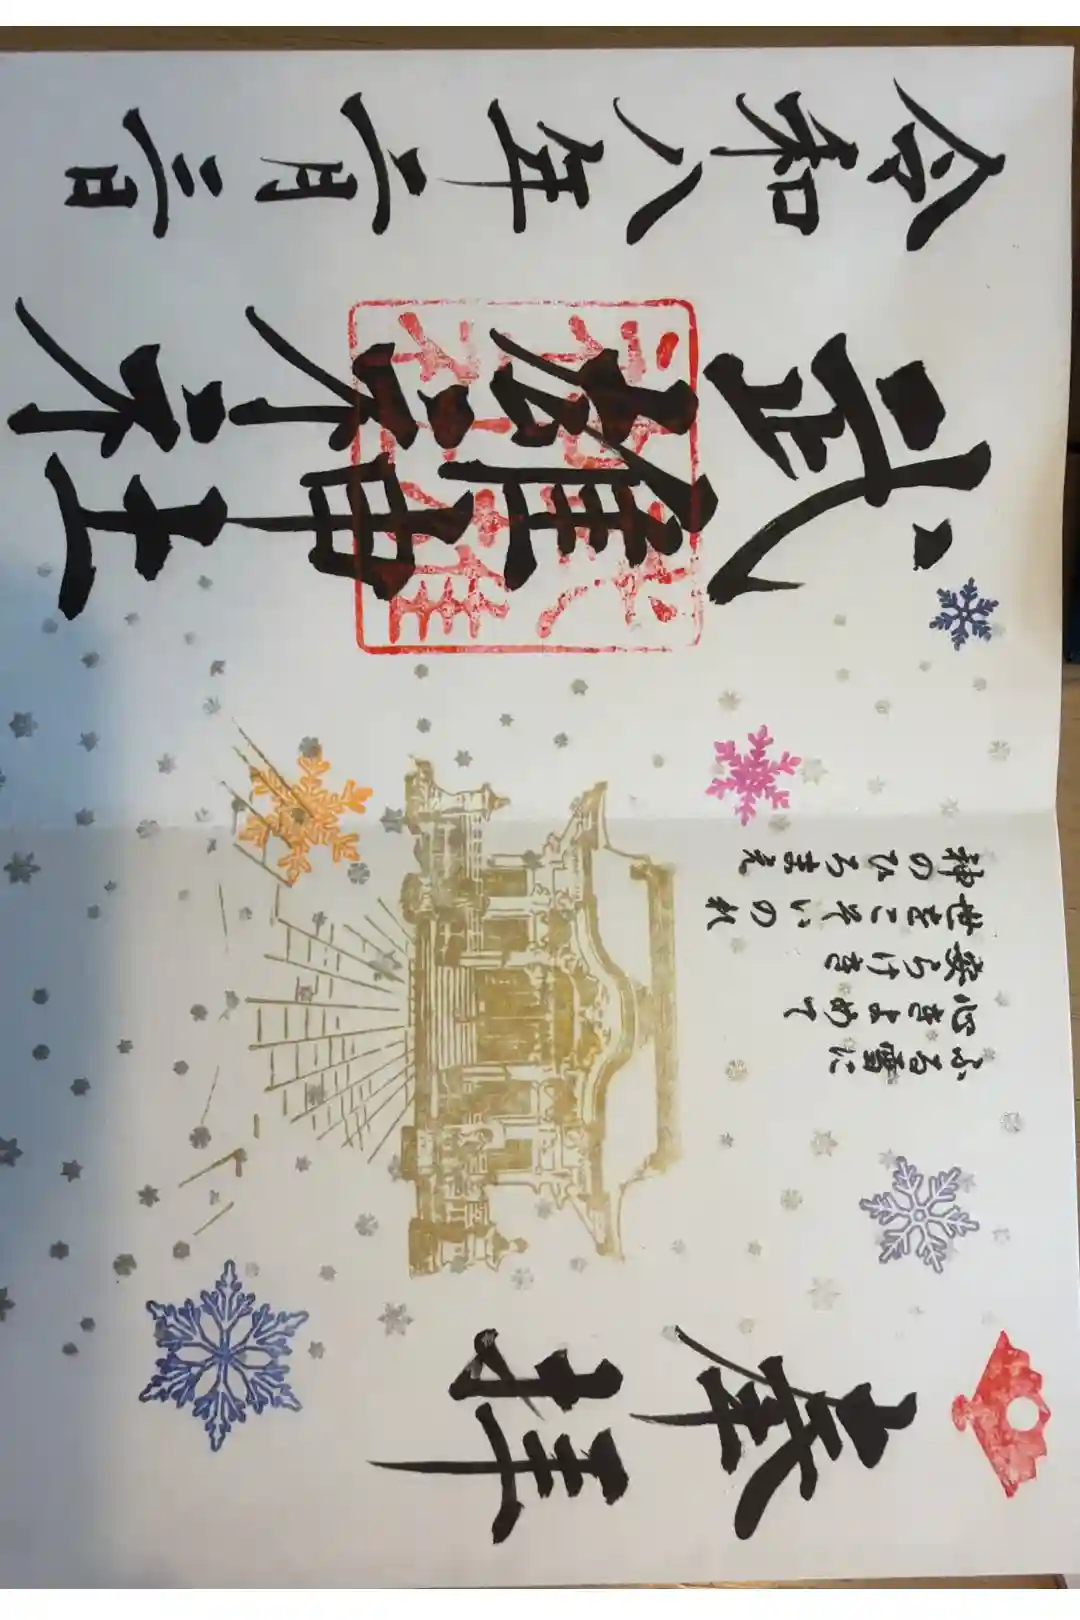 歳拝
ふる雪に
心きよめて
安らけき
世をこそいのれ
神のひろまえ
武雄神社
令和八年二月三日